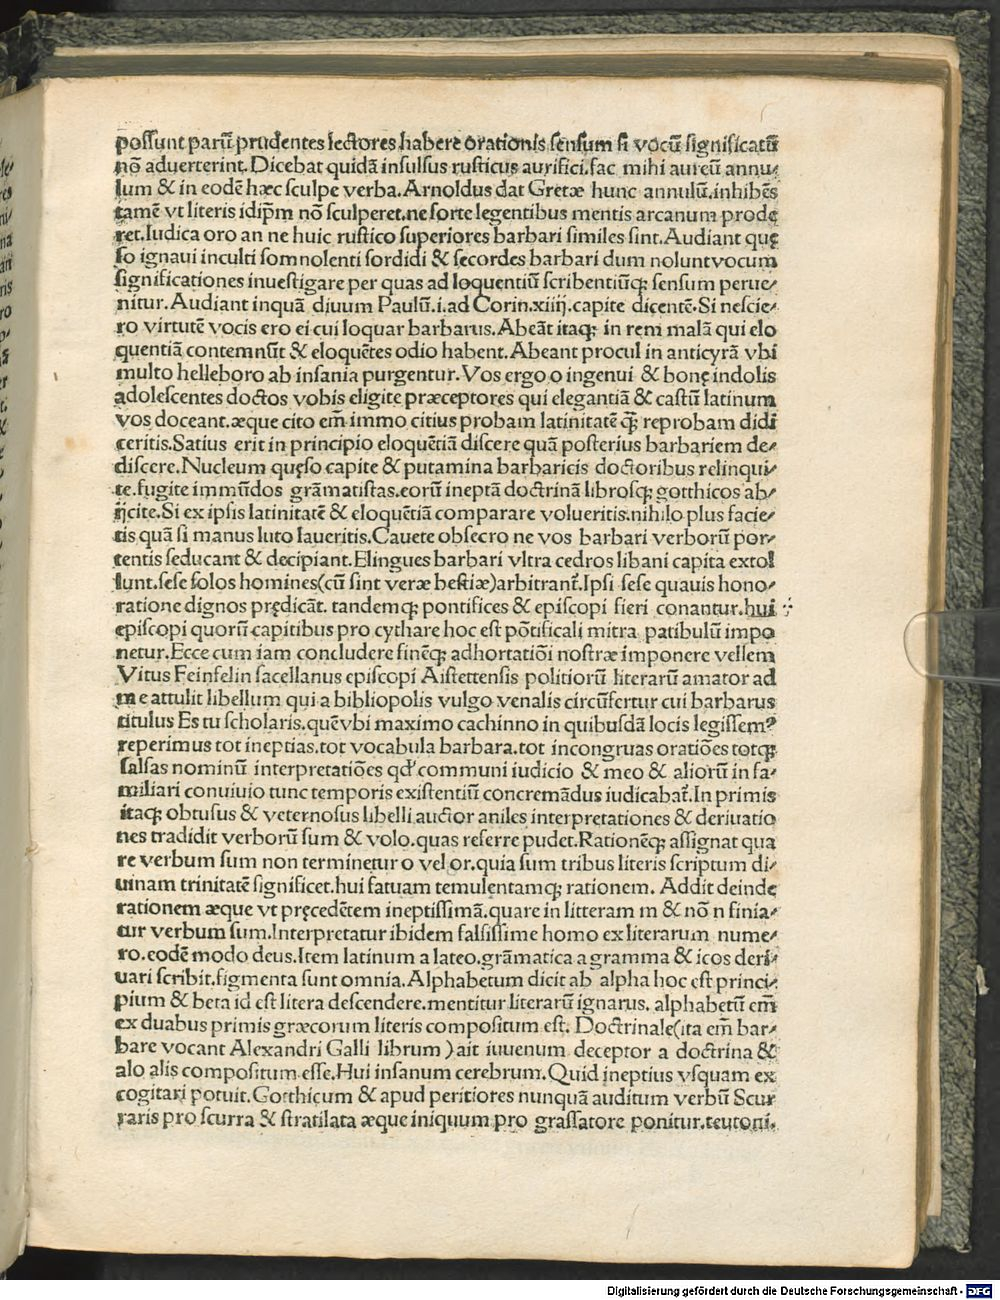 possunt parũ prudentes lectores habere orationis sensum si vocũ significatũ
nõ aduerterint. Dicebat quidã insulsus rusticus aurifici. fac mihi aureũ annu⸗
lum & in eodẽ hæc sculpe verba. Arnoldus dat Gretæ hunc annulũ. inhibẽs
tamẽ vt literis idip̃m nõ sculperet. ne forte legentibus mentis arcanum prode
ret. Iudica oro an ne huic rustico superiores barbari similes sint. Audiant quę
so ignaui inculti somnolenti sordidi & secordes barbari dum nolunt vocum
significationes inuestigare per quas ad loquentiũ scribentiũq; sensum perue⸗
nitur. Audiant inquã diuum Paulũ. i. ad Corin. xiiij. capite dicentẽ. Si nescie⸗
ro virtutẽ vocis ero ei cui loquar barbarus. Abeãt itaq; in rem malã qui elo
quentiã contemnũt & eloquẽtes odio habent. Abeant procul in anticyrã vbi
multo helleboro ab insania purgentur. Vos ergo o ingenui & bonę indolis
adolescentes doctos vobis eligite præceptores qui elegantiã & castũ latinum
vos doceant. æque cito em̃ immo citius probam latinitatẽ q̃ȝ reprobam didi
ceritis. Satius erit in principio eloquẽtiã discere quã posterius barbariem de⸗
discere. Nucleum quęso capite & putamina barbaricis doctoribus relinqui⸗
te. fugite immũdos grãmatistas. eorũ ineptã doctrinã librosq; gotthicos ab⸗
ijcite. Si ex ipsis latinitatẽ & eloquẽtiã comparare volueritis. nihilo plus facie⸗
tis quã si manus luto laueritis. Cauete obsecro ne vos barbari verborũ por⸗
tentis seducant & decipiant. Elingues barbari vltra cedros libani capita extol
lunt. sese solos homines (cũ sint veræ bestiæ) arbitrant̃. Ipsi sese quauis hono⸗
ratione dignos prędicãt. tandemq; pontifices & episcopi fieri conantur. hui
episcopi quorũ capitibus pro cythare hoc est põtificali mitra patibulũ impo
netur. Ecce cum iam concludere finẽq; adhortatiõi nostræ imponere vellem
Vitus Feinfelin sacellanus episcopi Aistettensis politiorũ literarũ amator ad
me attulit libellum qui a bibliopolis vulgo venalis circũfertur cui barbarus
titulus Es tu scholaris. quẽ vbi maximo cachinno in quibusdã locis legissem?
reperimus tot ineptias. tot vocabula barbara. tot incongruas oratiões totq;
falsas nominũ interpretatiões qd' communi iudicio & meo & aliorũ in fa⸗
miliari conuiuio tunc temporis existentiũ concremãdus iudicabat̃. In primis
itaq; obtusus & veternosus libelli auctor aniles interpretationes & deriuatio
nes tradidit verborũ sum & volo. quas referre pudet. Rationẽq; assignat qua
re verbum sum non terminetur o vel or. quia sum tribus literis scriptum di⸗
uinam trinitatẽ significet. hui fatuam temulentamq; rationem. Addit deinde
rationem æque vt pręcedẽtem ineptissimã. quare in litteram m & nõ n finia⸗
tur verbum sum. Interpretatur ibidem falsissime homo ex literarum nume⸗
ro. eodẽ modo deus. Item latinum a lateo. grãmatica a gramma & icos deri⸗
uari scribit. figmenta sunt omnia. Alphabetum dicit ab alpha hoc est princi⸗
pium & beta id est litera descendere. mentitur literarũ ignarus. alphabetũ em̃
ex duabus primis græcorum literis compositum est. Doctrinale (ita em̃ bar⸗
bare vocant Alexandri Galli librum) ait iuuenum deceptor a doctrina &
alo alis compositum esse. Hui insanum cerebrum. Quid ineptius vsquam ex
cogitari potuit. Gotthicum & apud peritiores nunquã auditum verbũ Scur
raris pro scurra & stratilata æque iniquum pro grassatore ponitur. teutoni.
Digitalisierung gefördert durch die Deutsche Forschungsgemeinschaft - DFG